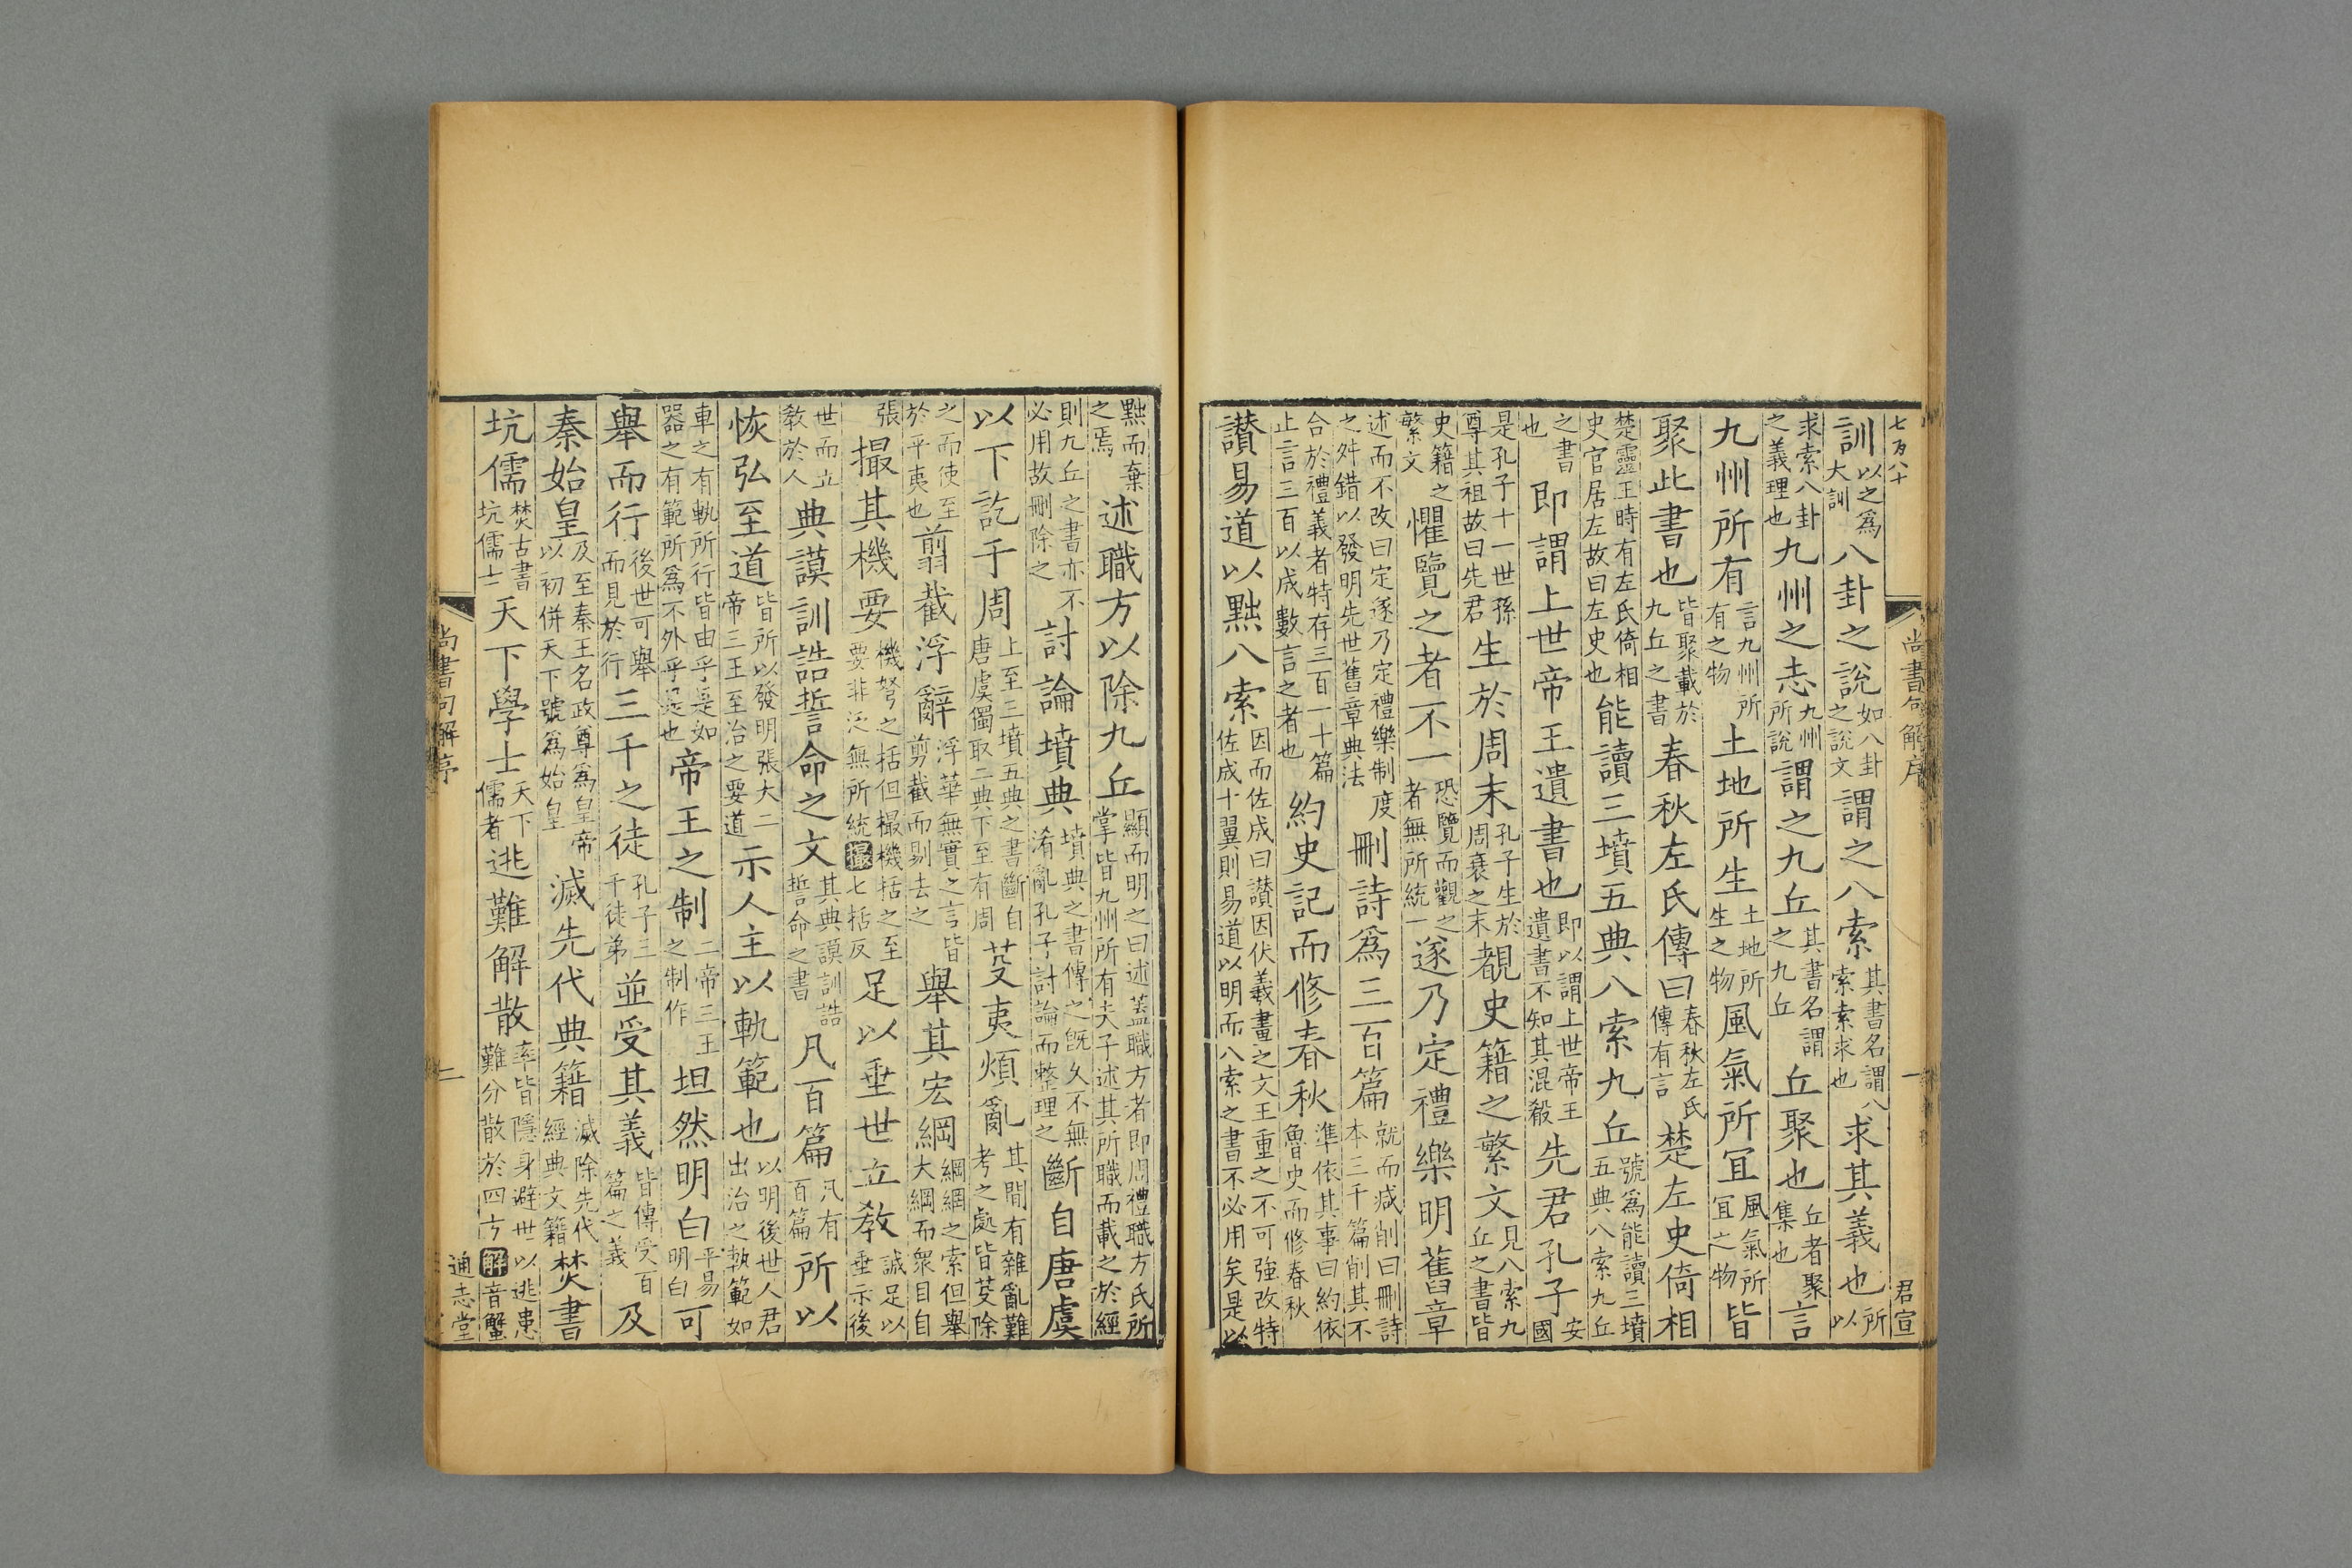 七百八十 尚書句解序 一 君宣
訓以之爲大訓八卦之說如八卦之說文謂之八索其書名謂八索索求也求其義也所以
求索八卦之義理也九州之志九州所說謂之九丘其書名謂之九丘丘聚也丘者聚集也言
九州所有言九州所有之物土地所生土地所生之物風氣所宜風氣所宜之物皆
聚此書也皆聚載於九丘之書春秋左氏傳曰春秋左氏傳有言楚左史倚相
楚靈王時有左氏倚相史官居左故曰左史也能讀三墳五典八索九丘號爲能讀三墳五典八索九丘
之書也即謂上世帝王遺書也即以謂上世帝王遺書不知其混殽先君孔子安國
是孔子十一世孫尊其祖故曰先君生於周末孔子生於周衰之末覩史籍之繁文見八索九丘之書皆
史籍之繁文懼覽之者不一恐覽而觀之者無所統一遂乃定禮樂明舊章
述而不改曰定遂乃定禮樂制度之舛錯以發明先世舊章典法刪詩爲三百篇就而減削曰刪詩本三千篇削其不
合於禮義者特存三百一十篇止言三百以成數言之者也約史記而修春秋準依其事曰約依魯史而修春秋
讚易道以黜八索因而佐成曰讚因伏羲畫之文王重之不可強改特佐成十翼則易道以明而八索之書不必用矣是以
黜而棄之焉述職方以除九丘顯而明之曰述蓋職方者即周禮職方氏所掌皆九州所有夫子述其所職而載之於經
則九丘之書亦不必用故刪除之討論墳典墳典之書傳之既久不無淆亂孔子討論而整理之斷自唐虞
以下訖于周上至三墳五典之書斷自唐虞獨取二典下至有周芟夷煩亂其間有雜亂難考之處皆芟除
之而使至於平夷也翦截浮辭浮華無實之言皆剪截而剔去之舉其宏綱綱綱之索但舉大綱而衆目自
張撮其機要機弩之括但撮機括之至要非泛無所統撮七括反足以垂世立敎誠足以垂示後
世而立敎於人典謨訓誥誓命之文其典謨訓誥誓命之書凡百篇凡有百篇所以
恢弘至道皆所以發明張大二帝三王至治之要道示人主以軌範也以明後世人君出治之執範如
車之有軌所行皆由乎是如器之有範所爲不外乎是也帝王之制二帝三王之制作坦然明白平易明白可
舉而行後世可舉而見於行三千之徒孔子三千徒弟並受其義皆傳受百篇之義及
秦始皇及至秦王名政尊爲皇帝以初併天下號爲始皇滅先代典籍滅除先代經典文籍焚書
坑儒焚古書坑儒士天下學士天下儒者逃難解散率皆隱身避世以逃患難分散於四方解音蟹
尚書句解序 二 通志堂